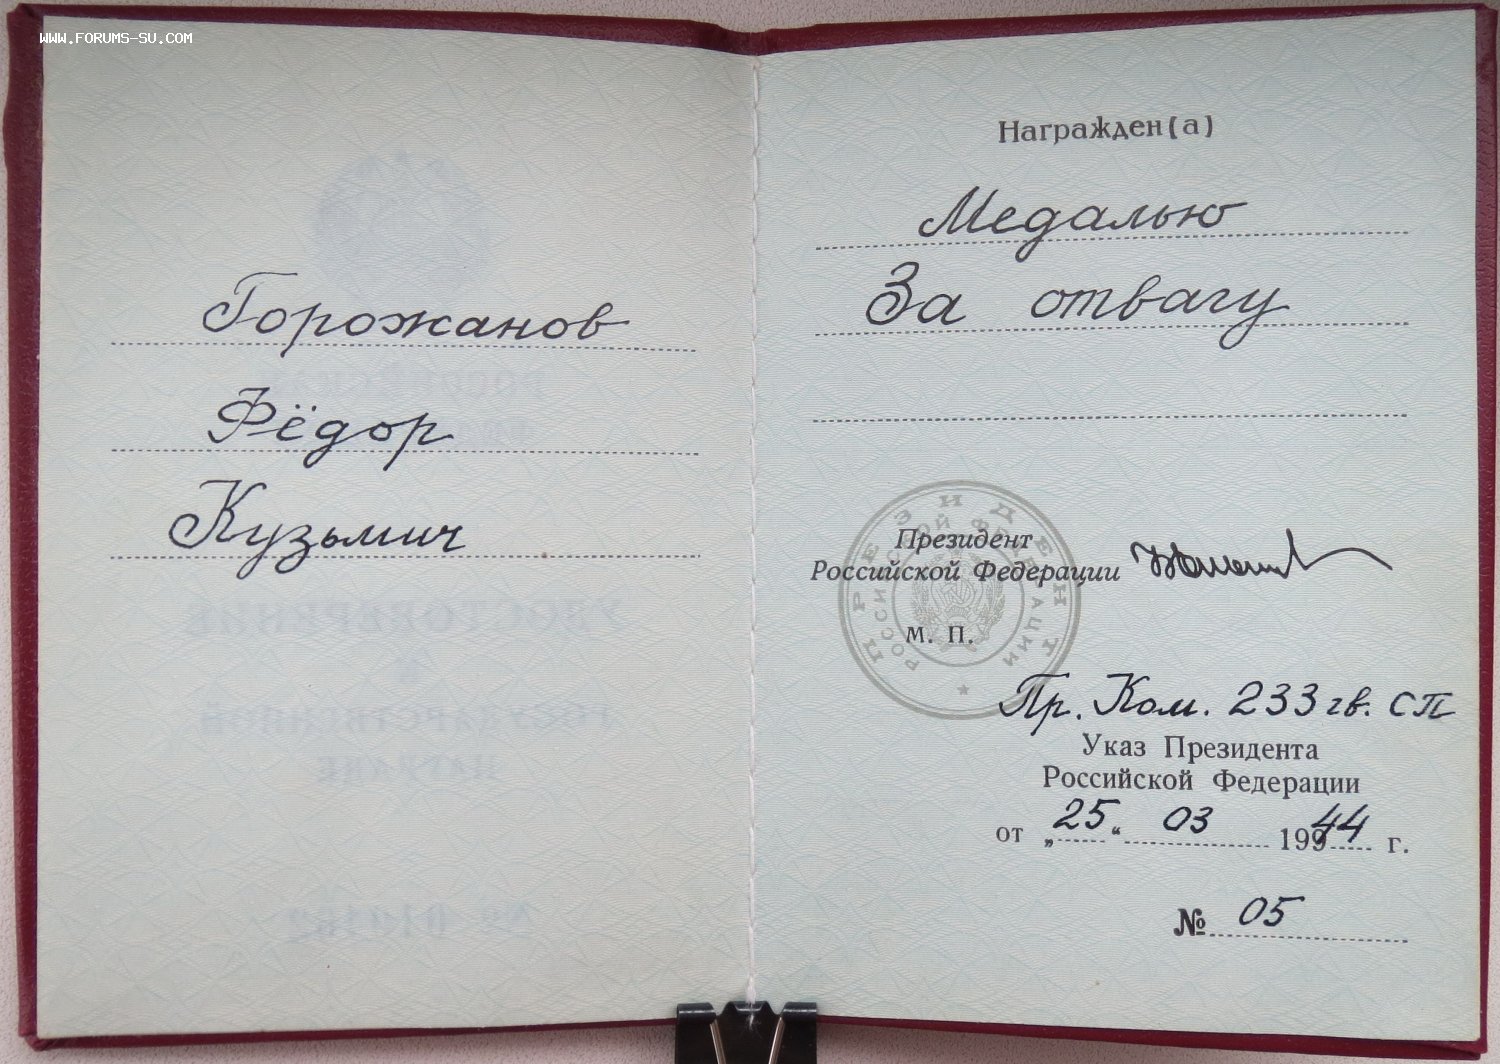 WWW.FORUMS-SU.COM
Горожанов
Фёдор
Кузьмич
Награжден(а)
Медалью
За отвагу
ПРЕЗИДЕНТ
РОССИЙСКОЙ ФЕДЕРАЦИИ
Президент
Российской Федерации
М. П.
Пр. Ком. 233 гв. СП
Указ Президента
Российской Федерации
от „25“ 03 19944 г.
№ 05